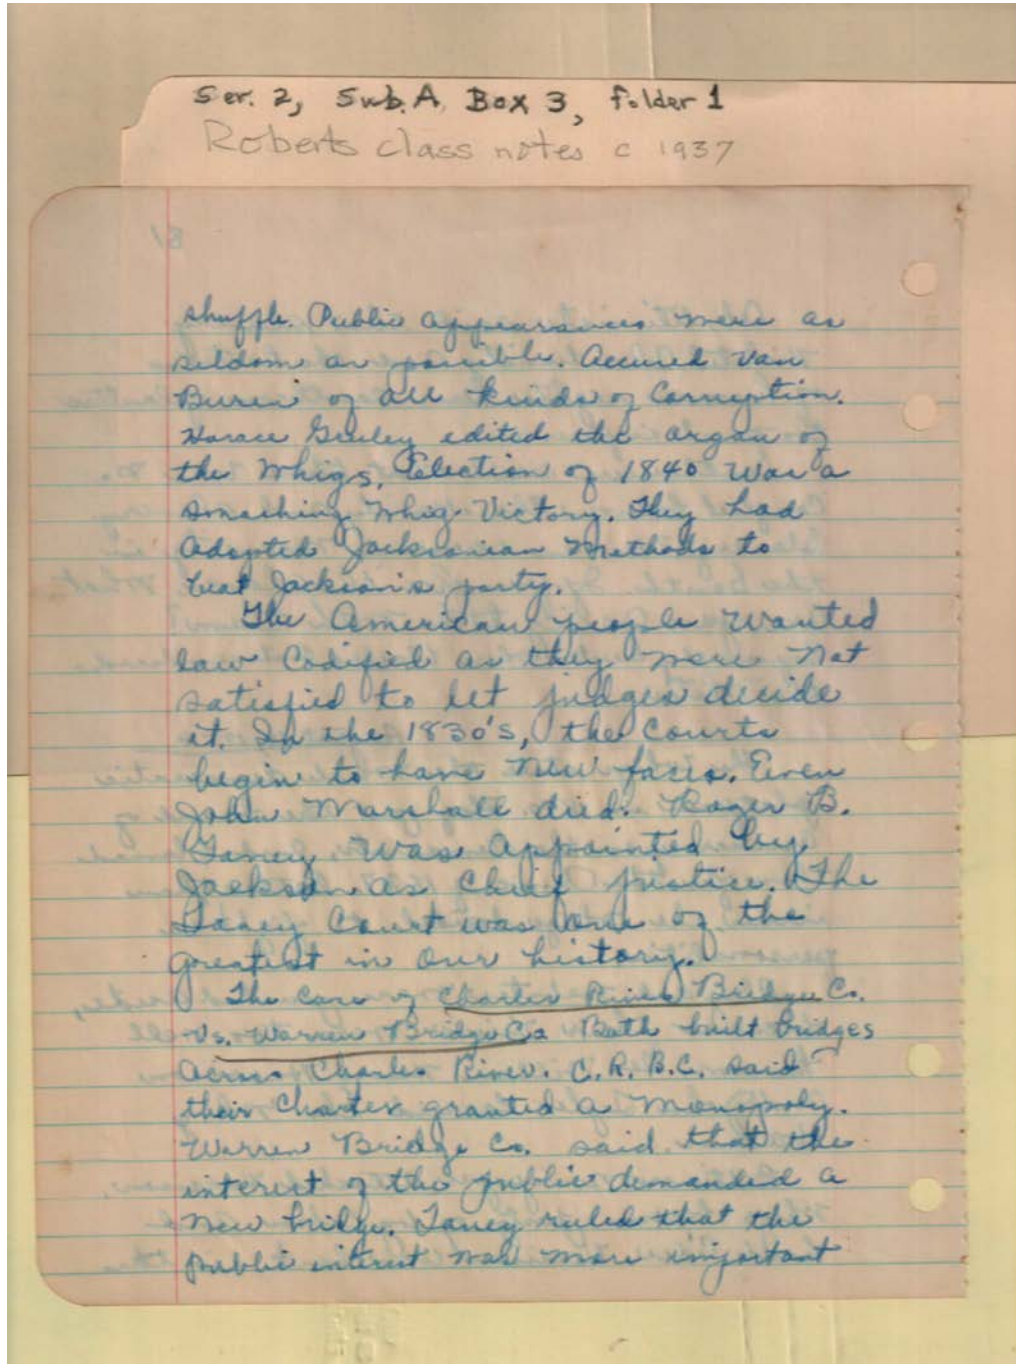 Ser. 2, Sub. A, Box 3, folder 1
Roberts class notes c 1937
81
shuffle. Public appearances were as
seldom as possible. Accused Van
Buren of all kinds of Corruption.
Horace Greeley edited the organ of
the Whigs. Election of 1840 was a
smashing Whig Victory. They had
adopted Jacksonian Methods to
beat Jackson's party.
The American people wanted
law Codified as they were not
satisfied to let judges decide
it. In the 1830's, the Courts
begin to have new faces. Even
John Marshall died. Roger B.
Taney was appointed by
Jackson as Chief justice. The
Taney Court was one of the
greatest in our history.
The Case of Charles River Bridge Co.
Vs. Warren Bridge Co. Both built bridges
Across Charles River. C.R.B.C. said
their Charter granted a Monopoly.
Warren Bridge Co. said that the
interest of the public demanded a
new bridge. Taney ruled that the
public interest was more important